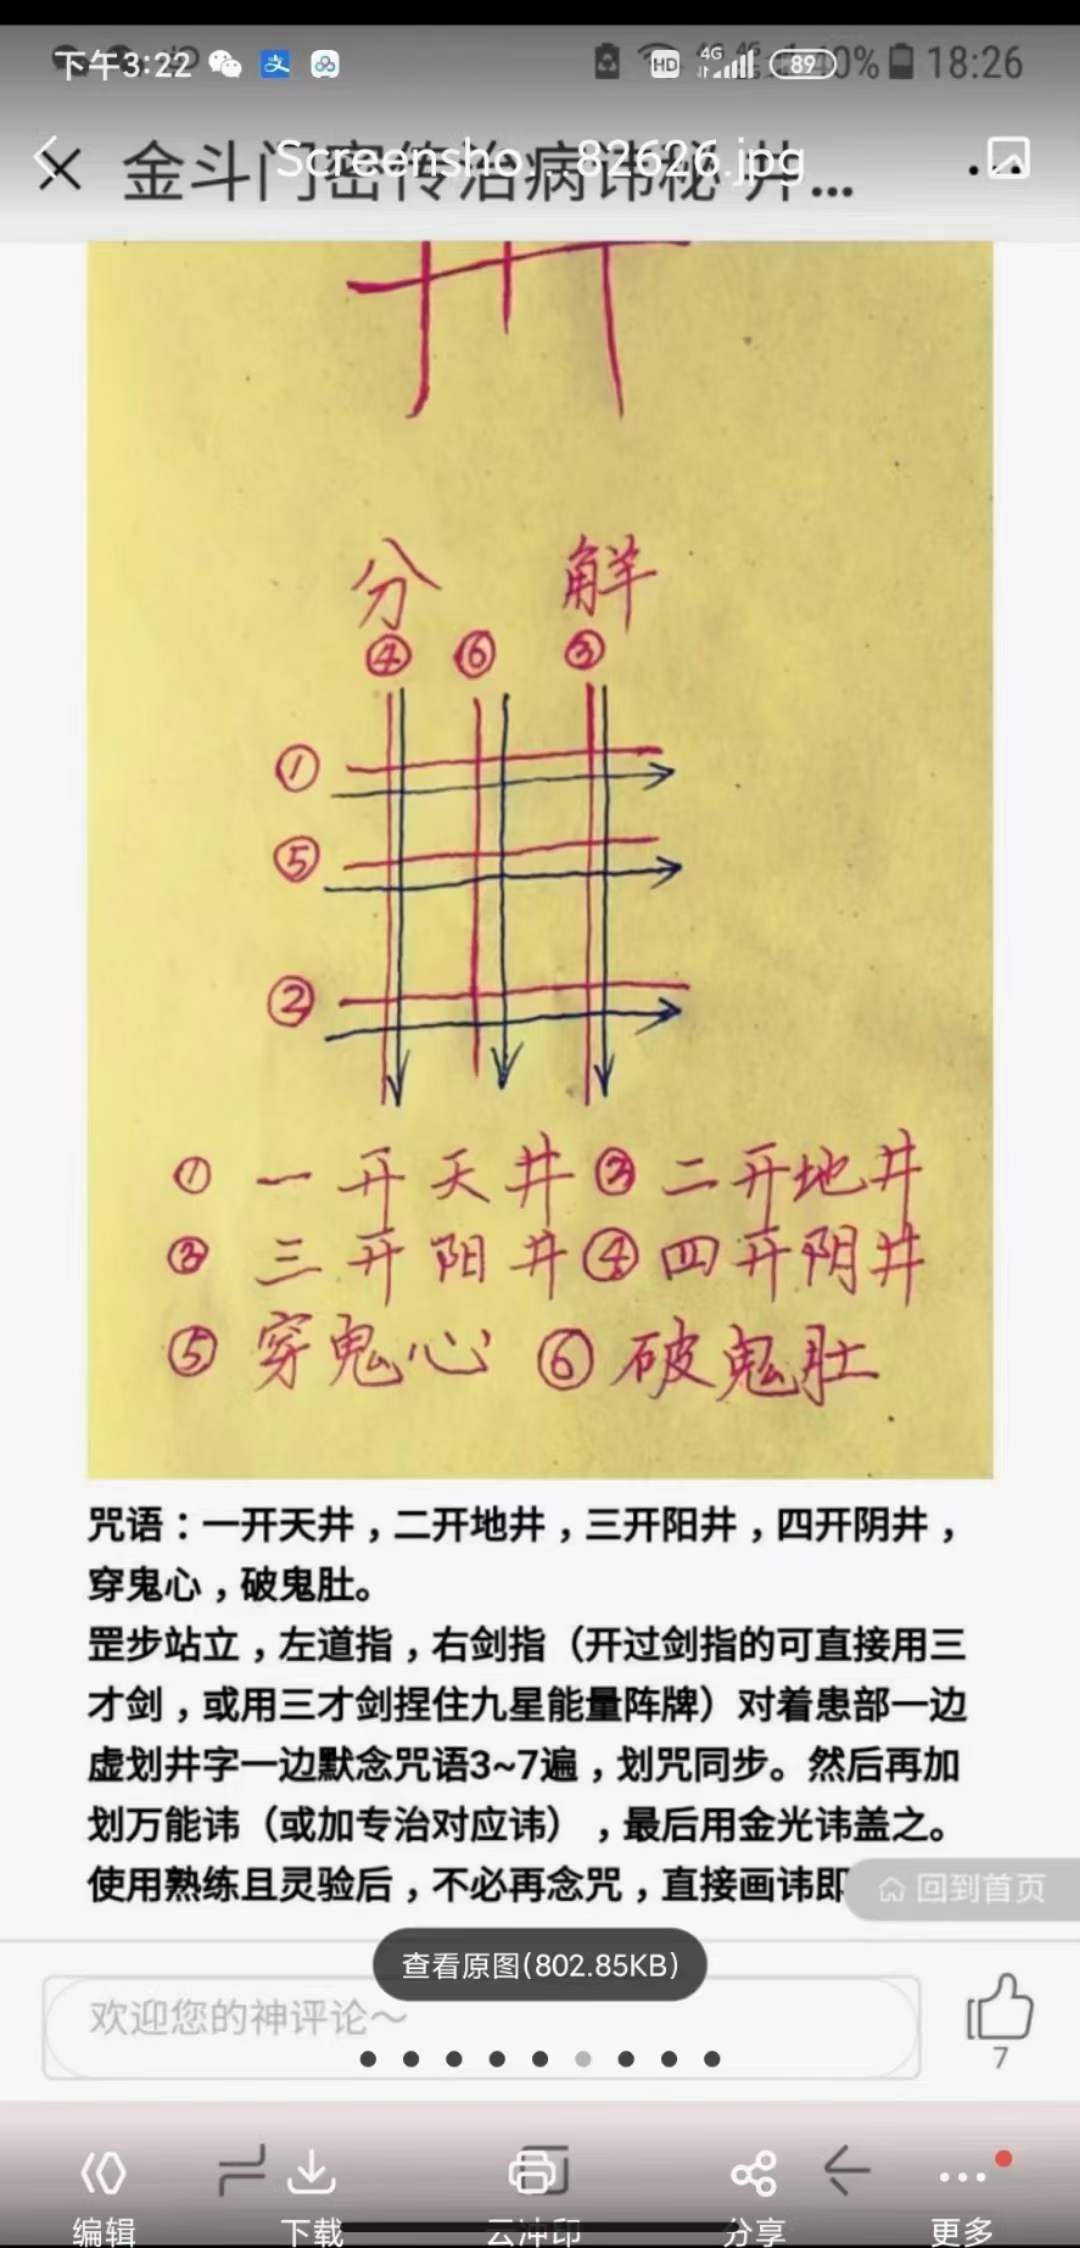 下午3:22
HD 4G 89 40% 18:26
金斗门密传治病讳秘 井...
Screensho...82626.jpg
分 解
④ ⑥ ③
①
⑤
②
① 一开天井 ② 二开地井
③ 三开阳井 ④ 四开阴井
⑤ 穿鬼心 ⑥ 破鬼肚
咒语：一开天井，二开地井，三开阳井，四开阴井，
穿鬼心，破鬼肚。
罡步站立，左道指，右剑指（开过剑指的可直接用三
才剑，或用三才剑捏住九星能量阵牌）对着患部一边
虚划井字一边默念咒语3~7遍，划咒同步。然后再加
划万能讳（或加专治对应讳），最后用金光讳盖之。
使用熟练且灵验后，不必再念咒，直接画讳即
回到首页
查看原图(802.85KB)
欢迎您的神评论～
7
编辑 下载 云冲印 分享 更多